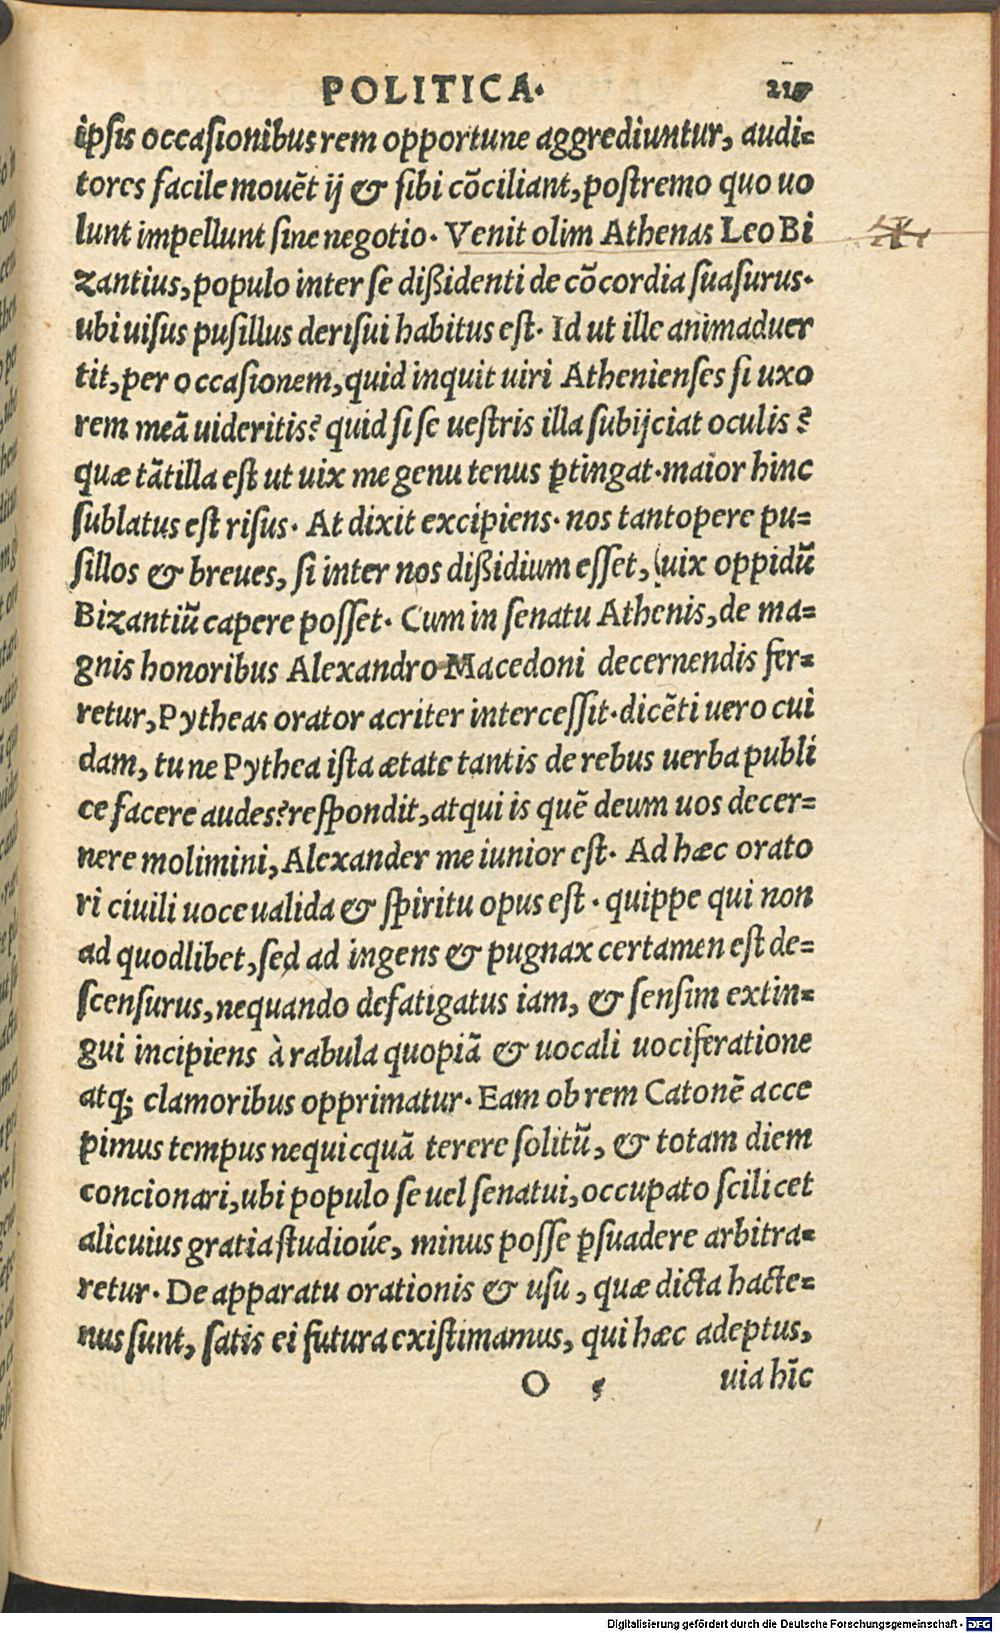 POLITICA.
ipsis occasionibus rem opportune aggrediuntur, audi=
tores facile mouẽt ij & sibi cõciliant, postremo quo uo
lunt impellunt sine negotio. Venit olim Athenas Leo Bi
zantius, populo inter se dißidenti de cõcordia suasurus.
ubi uisus pusillus derisui habitus est. Id ut ille animaduer
tit, per occasionem, quid inquit uiri Athenienses si uxo
rem meã uideritis? quid si se uestris illa subijciat oculis?
quæ tãtilla est ut uix me genu tenus ꝑtingat. maior hinc
sublatus est risus. At dixit excipiens. nos tantopere pu=
sillos & breues, si inter nos dißidium esset, uix oppidũ
Bizantiũ capere posset. Cum in senatu Athenis, de ma=
gnis honoribus Alexandro Macedoni decernendis fer=
retur, Pytheas orator acriter intercessit. dicẽti uero cui
dam, tu ne Pythea ista ætate tantis de rebus uerba publi
ce facere audes? respondit, atqui is quẽ deum uos decer=
nere molimini, Alexander me iunior est. Ad hæc orato
ri ciuili uoce ualida & spiritu opus est. quippe qui non
ad quodlibet, sed ad ingens & pugnax certamen est de=
scensurus, ne quando defatigatus iam, & sensim extin=
gui incipiens à rabula quopiã & uocali uociferatione
atq; clamoribus opprimatur. Eam ob rem Catonẽ acce
pimus tempus nequicquã terere solitũ, & totam diem
concionari, ubi populo se uel senatui, occupato scilicet
alicuius gratia studioúe, minus posse ꝑsuadere arbitra=
retur. De apparatu orationis & usu, quæ dicta hacte=
nus sunt, satis ei futura existimamus, qui hæc adeptus,
O s uia hĩc
Digitalisierung gefördert durch die Deutsche Forschungsgemeinschaft - DFG